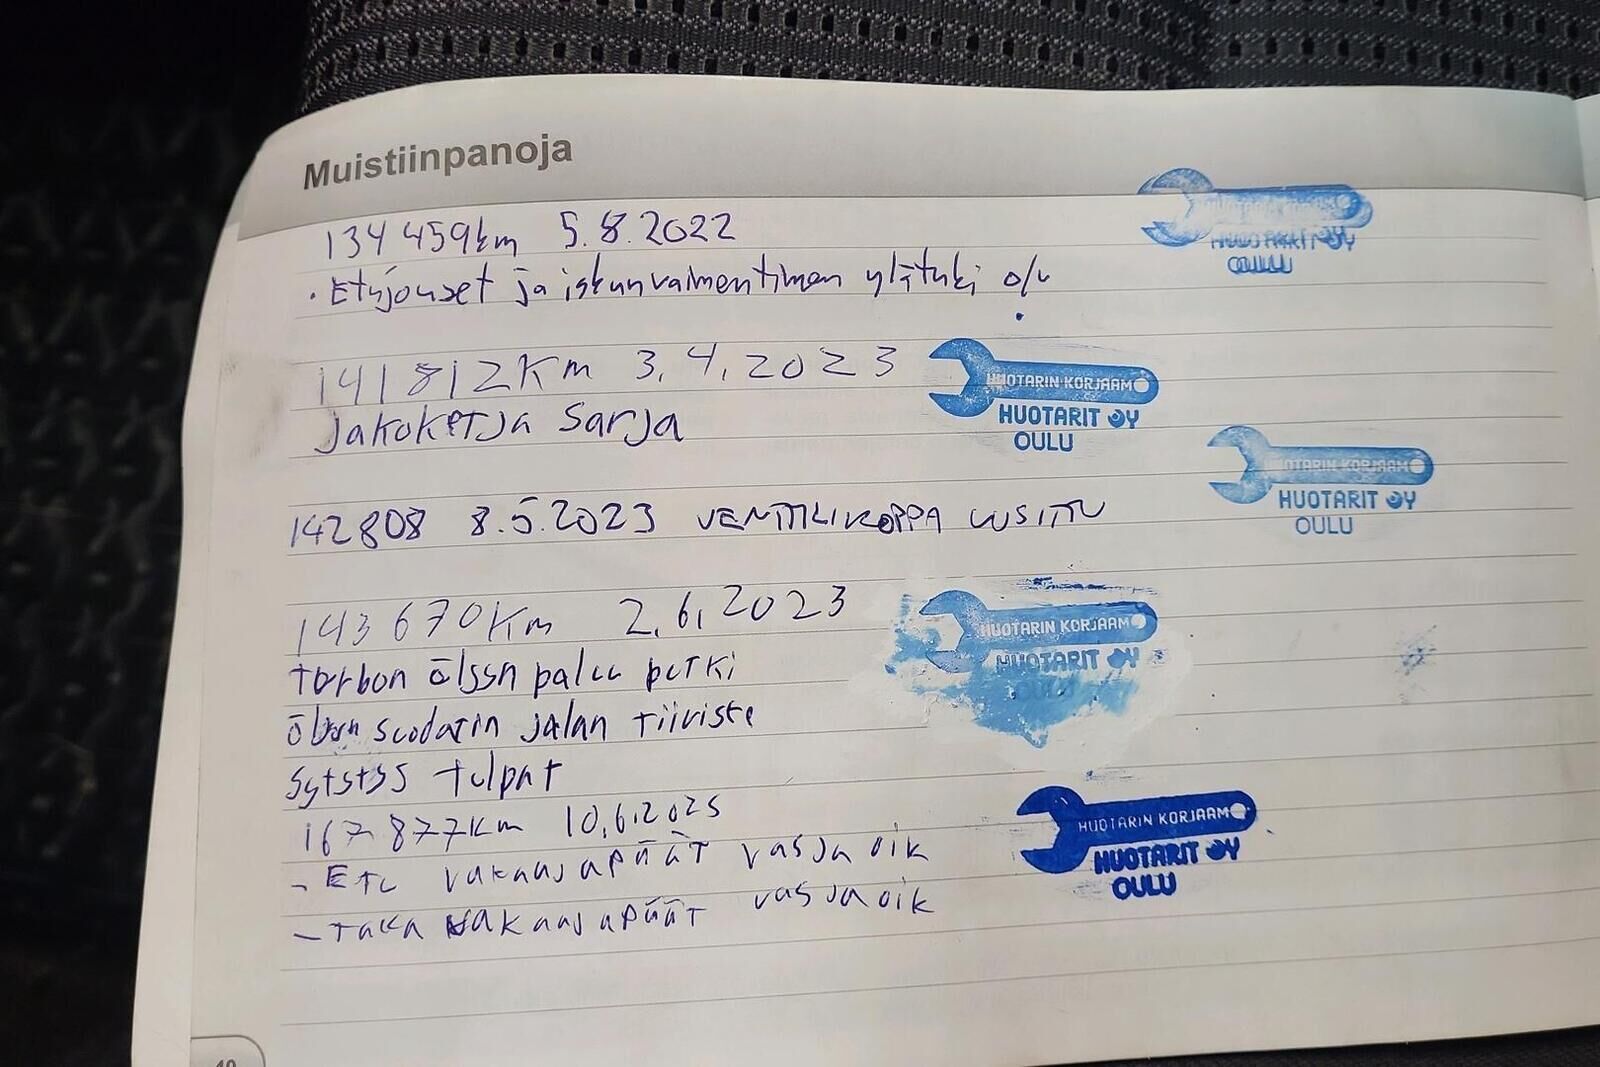 Muistiinpanoja
134 459km 5.8.2022
HUOTARIT OY
OULU
· Etujouset ja iskunvaimentimen ylätuki o/v
141812Km 3.4.2023
HUOTARIN KORJAAMO
HUOTARIT OY
OULU
Jakoketju Sarja
HUOTARIN KORJAAMO
HUOTARIT OY
OULU
142808 8.5.2023 VENTTIILIKOPPA UUSITTU
143670Km 2.6.2023
HUOTARIN KORJAAMO
HUOTARIT OY
OULU
turbon öljyn paluu putki
öljyn suodatin jalan tiiviste
Sytytys tulpat
167 877Km 10.6.2025
HUOTARIN KORJAAMO
HUOTARIT OY
OULU
- Etu vakaajapäät vas ja oik
- Taka vakaajapäät vas ja oik